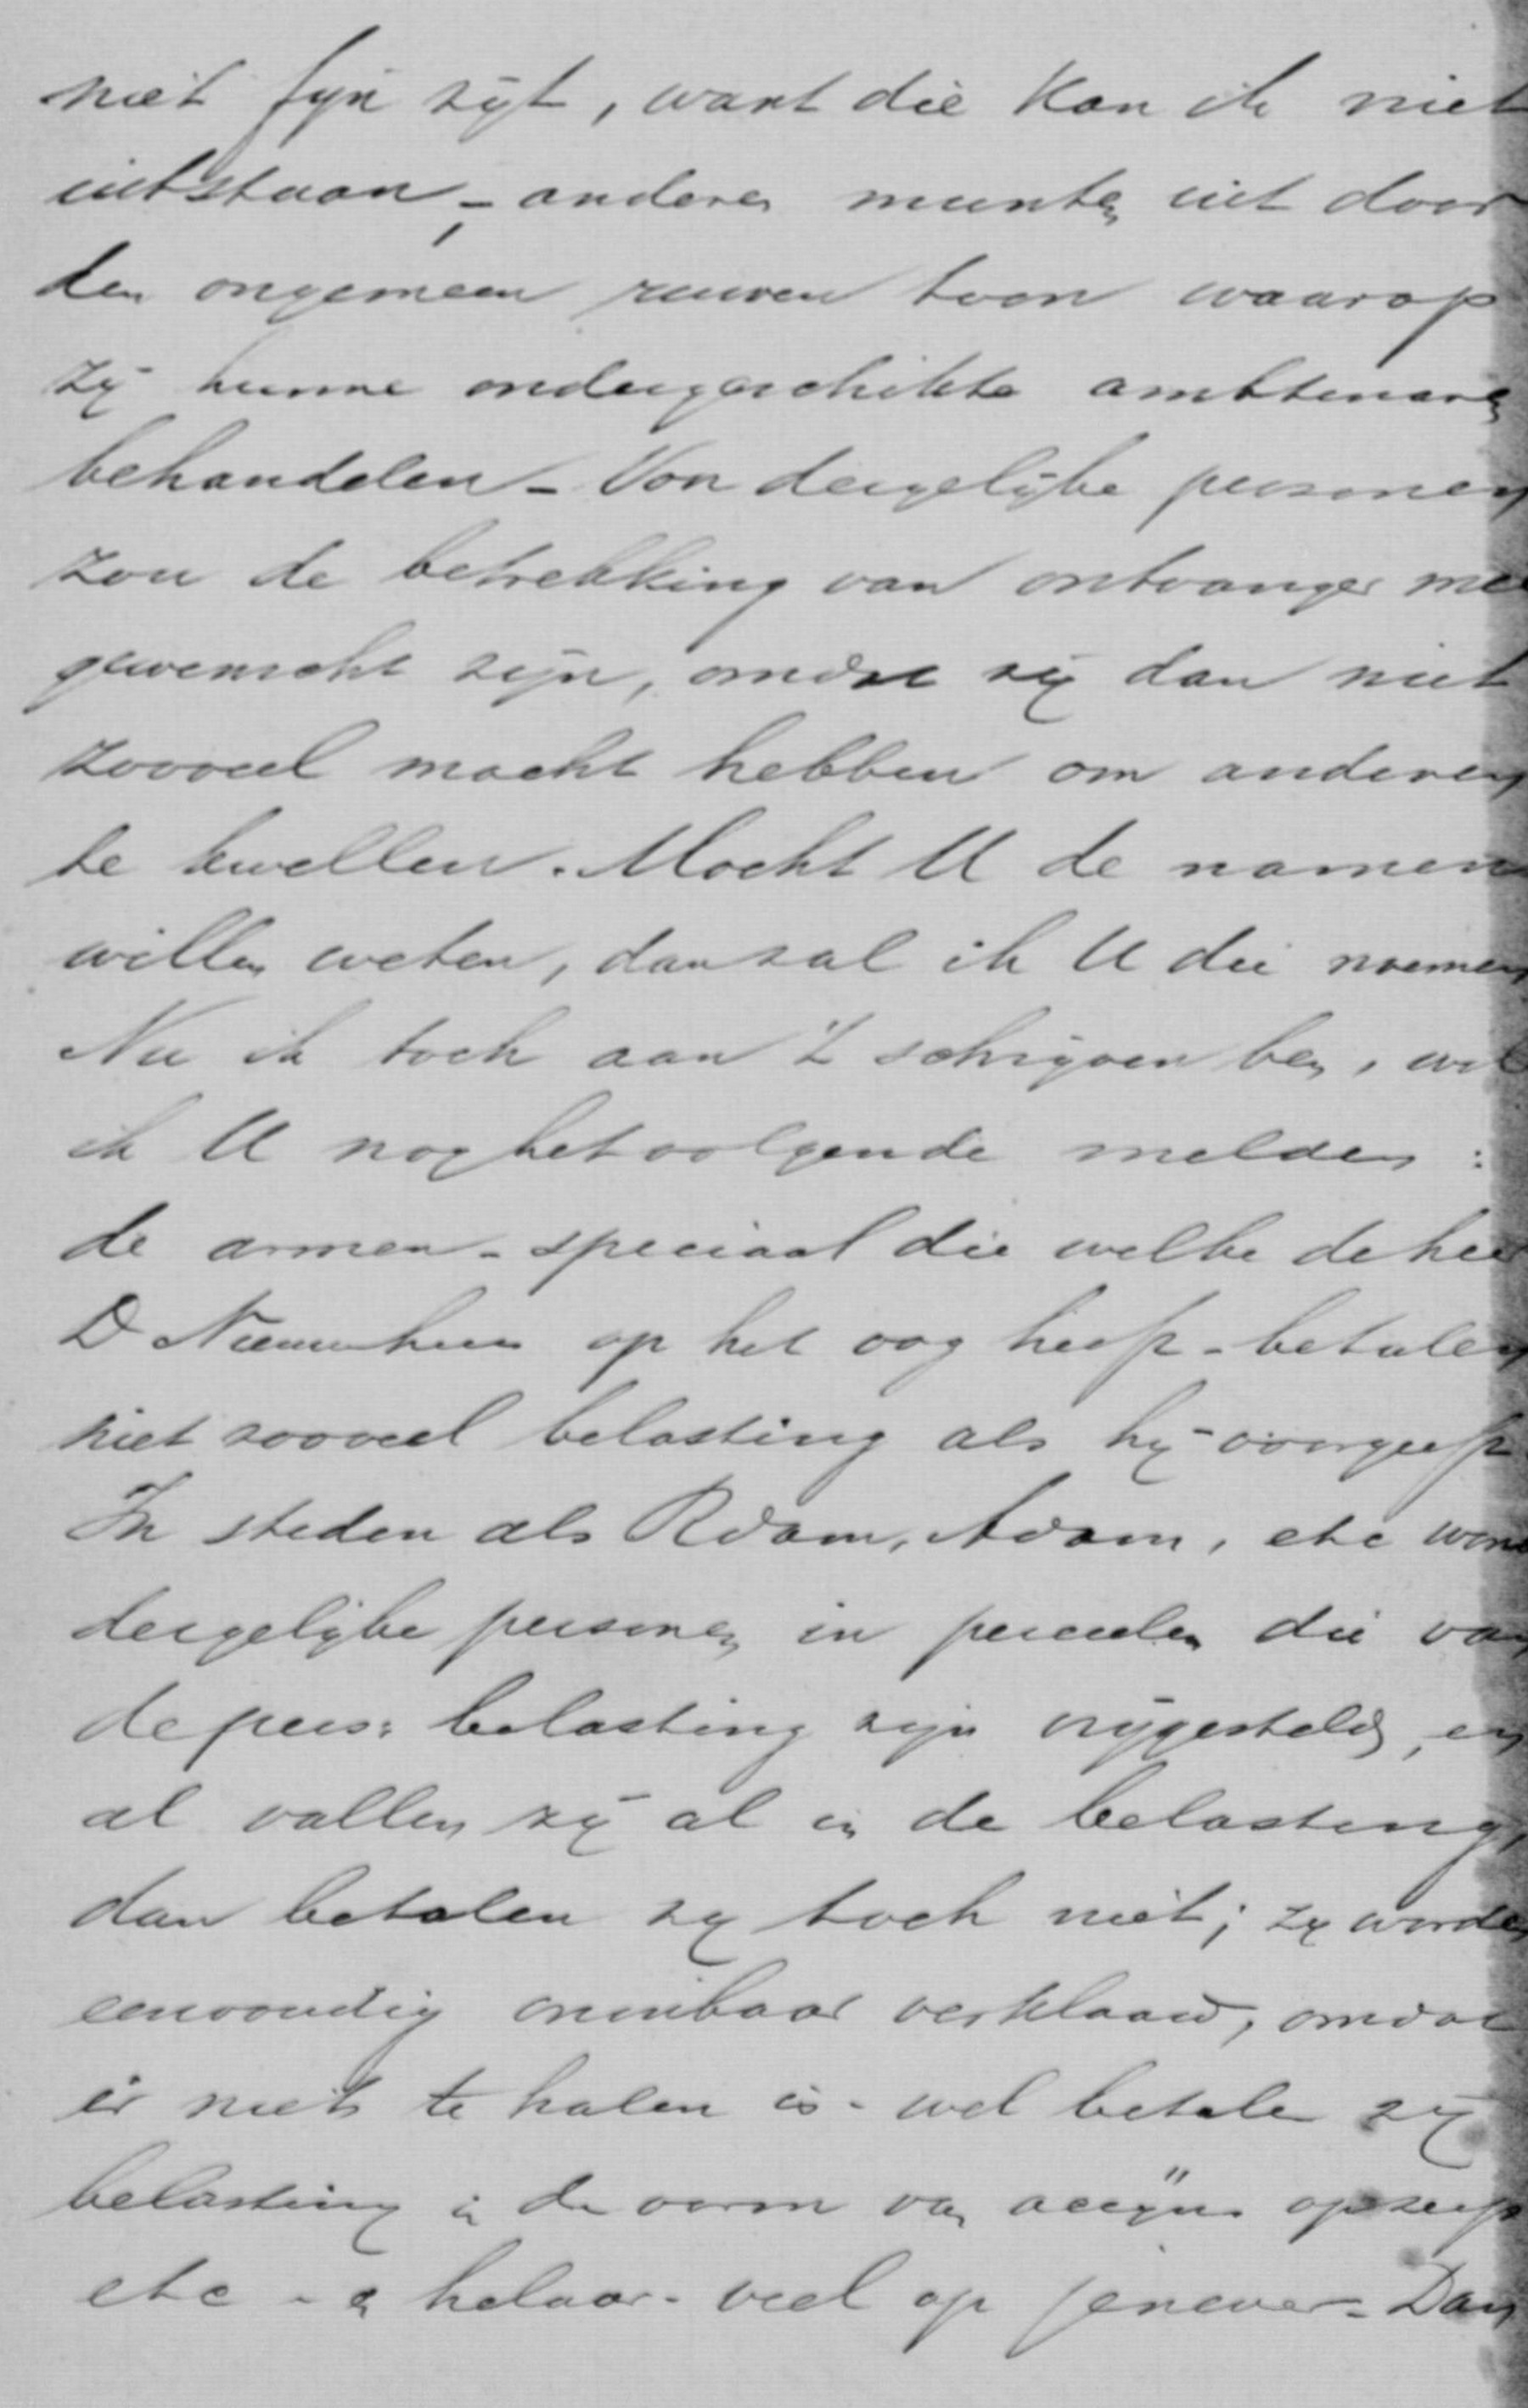 niet fijn zijt, want die kan ik niet
uitstaan, - anderen munten uit door
den ongemeen ruwen toon waarop
zij hunne ondergeschikte ambtenaren
behandelen - Van dergelijke personen
zou de betrekking van ontvanger
gewenscht zijn, omdat zij dan niet
zooveel macht hebben om anderen
te kwellen. Mocht U de namen
willen weten, dan zal ik U die noemen
Nu ik toch aan 't schrijven ben, wil
ik U nog het volgende melden :
de armen - speciaal die welke de heer
D Nieuwenhuis op het oog heeft - betalen
niet zooveel belasting als hij voorgeeft
In steden als Rdam, Adam, etc wonen
dergelijke personen in perceelen die van
de pers: belasting zijn vrijgesteld, en
al vallen zij al in de belasting,
dan betalen zij toch niet; zij worden
eenvoudig oninbaar verklaard, omdat
er niets te halen is - wel betalen zij
belasting in de vorm van accijns op zeep
etc - en helaas - veel op jenever - Dan